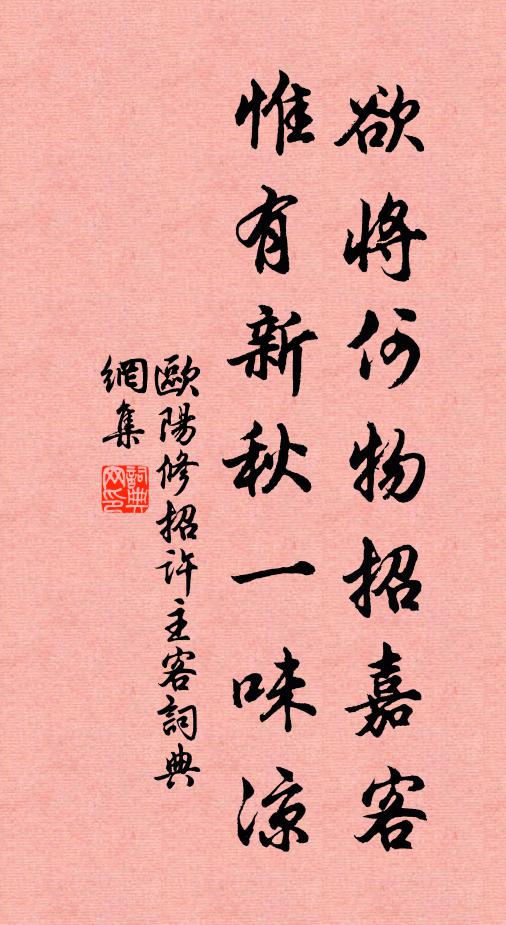 欲將何物招嘉客
惟有新秋一味涼
歐陽修招許主客詞典
網集
詞典
网印